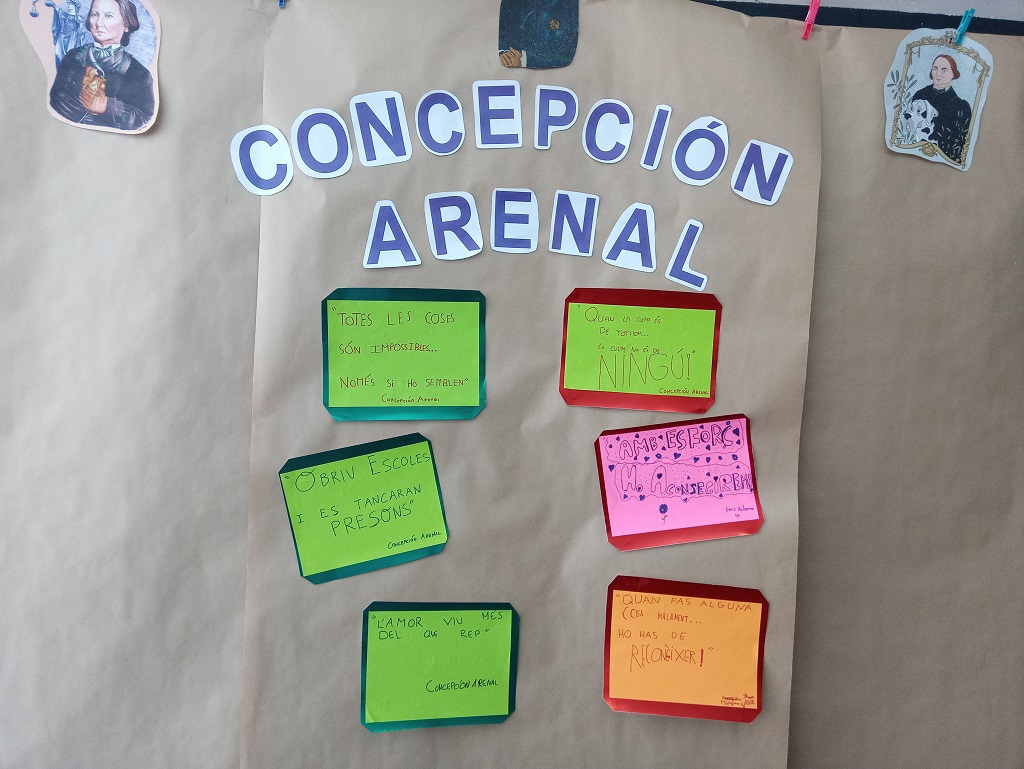 CONCEPCIÓN
ARENAL
"TOTES LES COSES
SÓN IMPOSSIBLES...
NOMÉS SI HO SEMBLEN"
Concepción Arenal
"QUAN LA CULPA ÉS
DE TOTHOM...
LA CULPA NO ÉS DE
NINGÚ!"
CONCEPCIÓN ARENAL
"OBRIU ESCOLES
I ES TANCARAN
PRESONS"
CONCEPCIÓN ARENAL
AMB ESFORÇ
HO ACONSEGUIREM
"L'AMOR VIU MÉS
DEL QUE REP"
CONCEPCIÓN ARENAL
"QUAN FAS ALGUNA
COSA MALAMENT...
HO HAS DE
RECONÈIXER!"